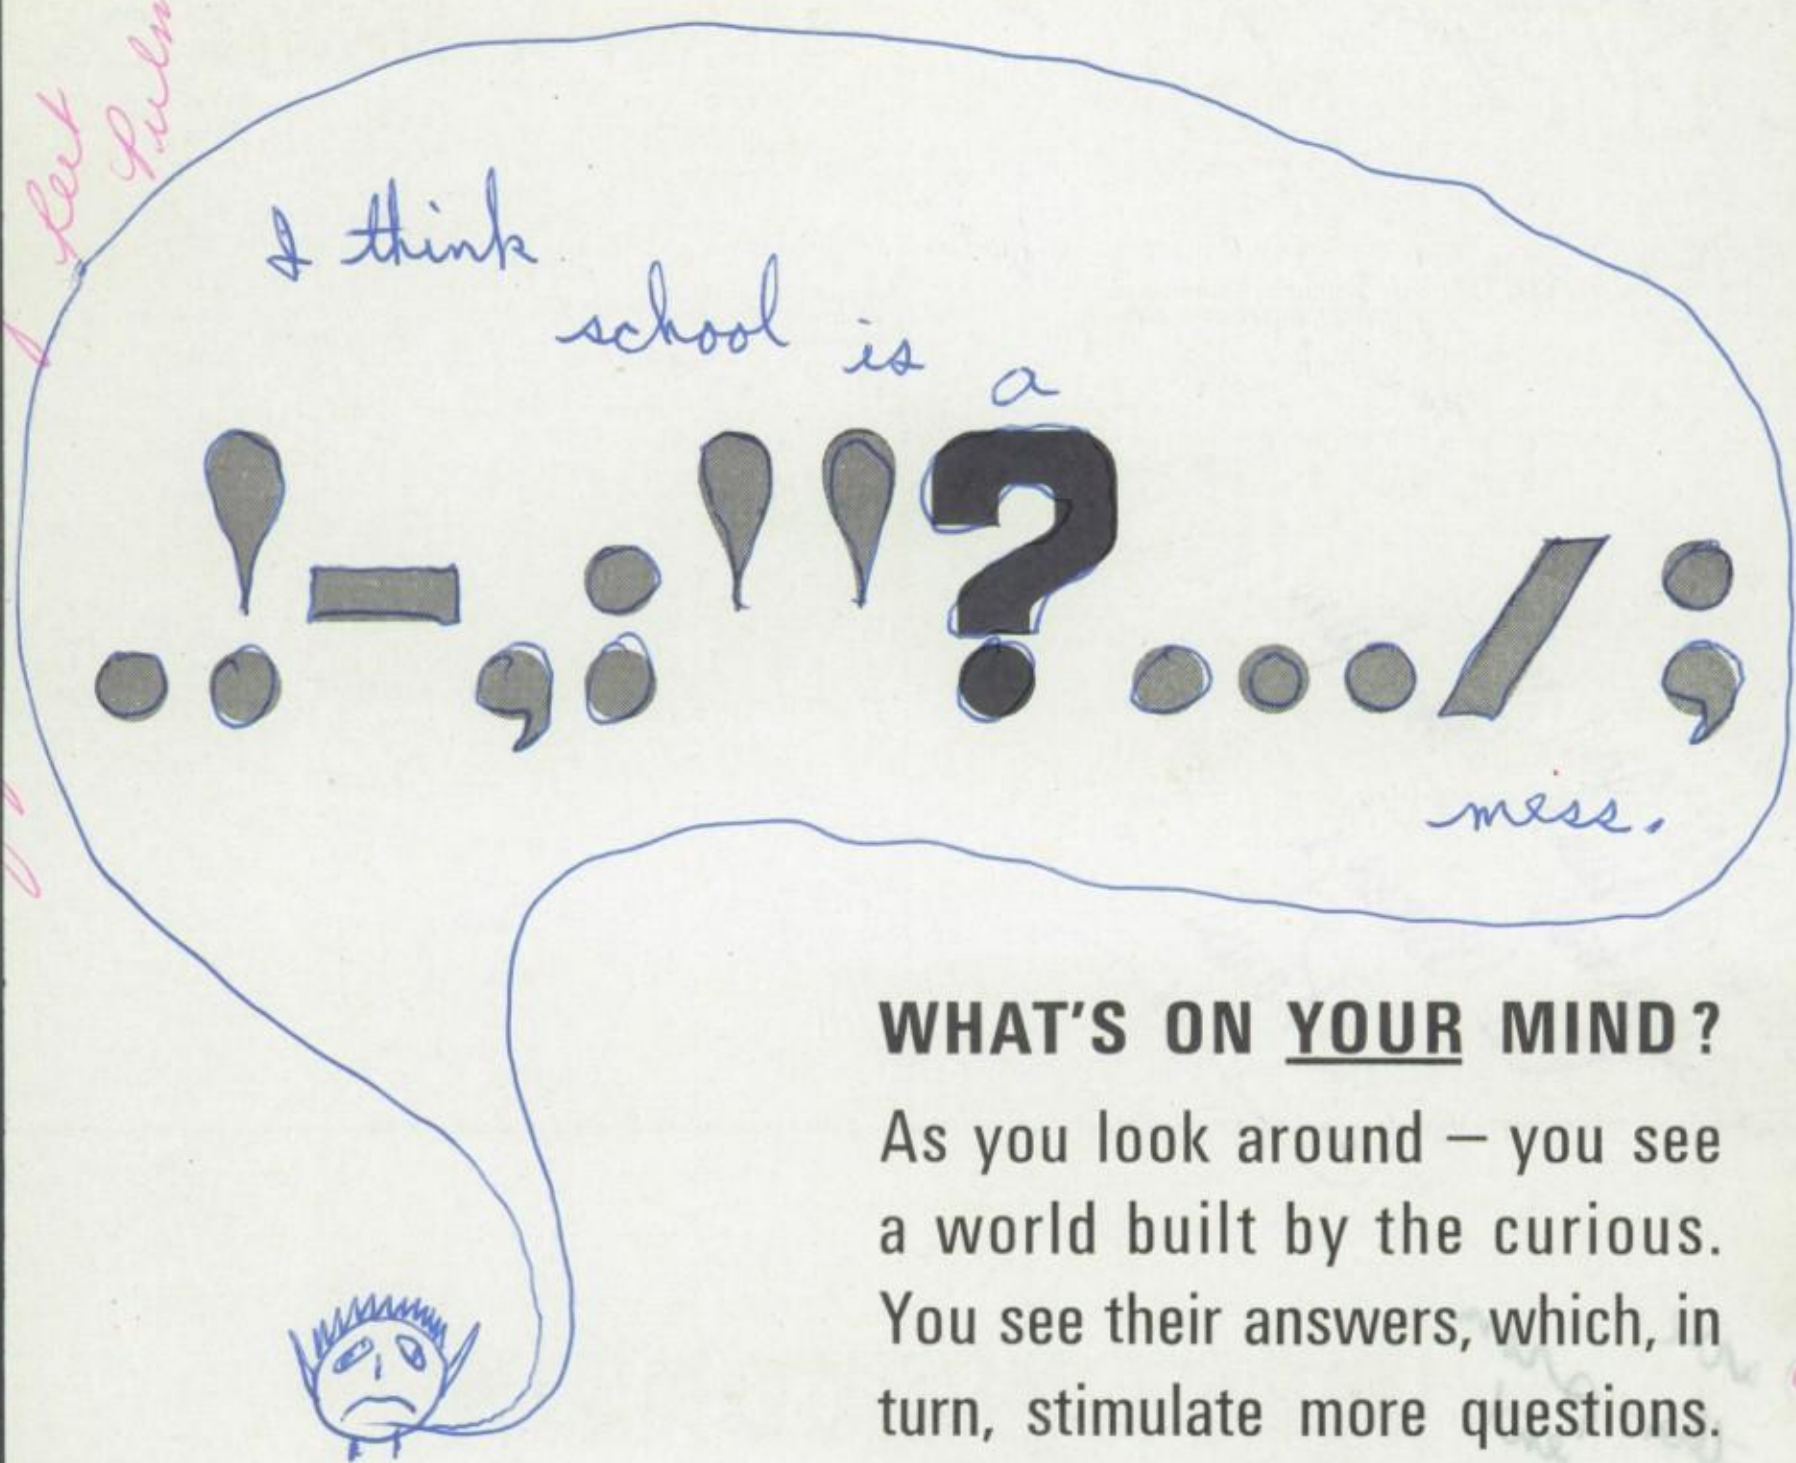 I think
school is a
.!-,:''?.../;
mess.
WHAT'S ON YOUR MIND?
As you look around – you see
a world built by the curious.
You see their answers, which, in
turn, stimulate more questions.